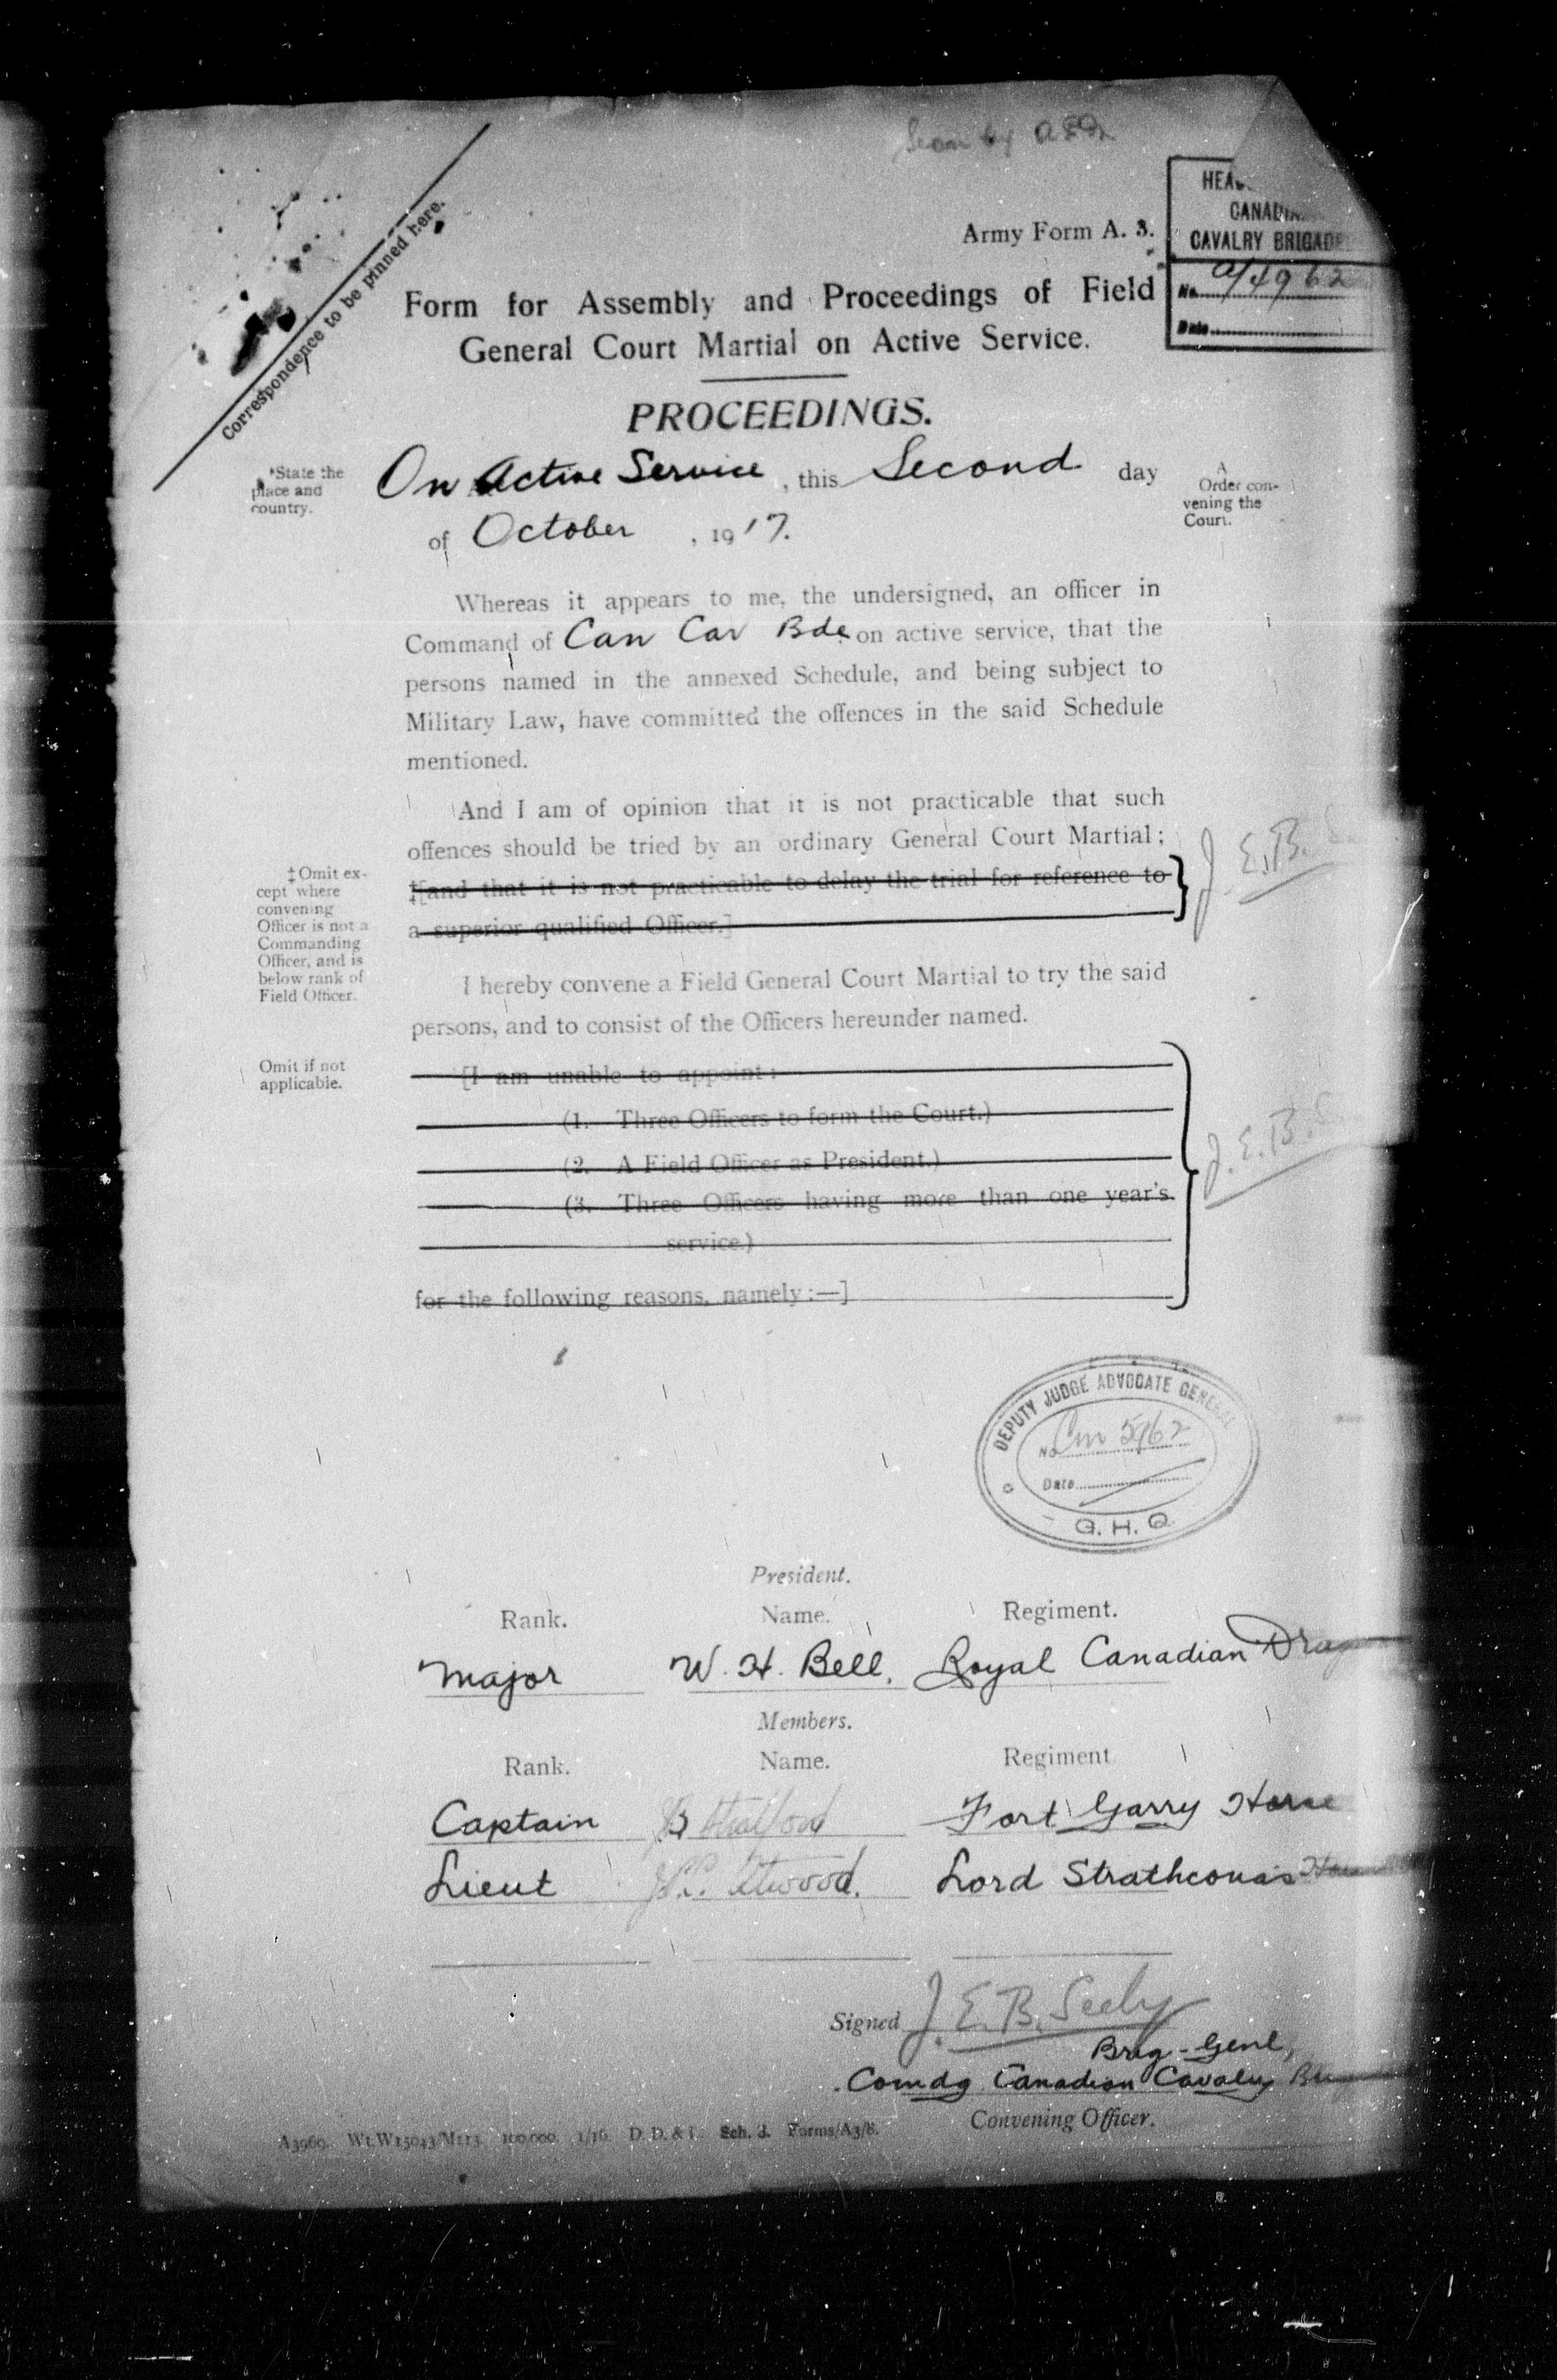 Seen by
Army Form A. 3.
CANADIAN
CAVALRY BRIGADE
No. a/4962
Date
Correspondence to be pinned here.
Form for Assembly and Proceedings of Field
General Court Martial on Active Service.
PROCEEDINGS.
*State the
place and
country.
On Active Service, this Second day
of October, 1917.
A
Order con-
vening the
Court.
Whereas it appears to me, the undersigned, an officer in
Command of Can Cav Bde. on active service, that the
persons named in the annexed Schedule, and being subject to
Military Law, have committed the offences in the said Schedule
mentioned.
And I am of opinion that it is not practicable that such
offences should be tried by an ordinary General Court Martial;
‡[and that it is not practicable to delay the trial for reference to
a superior qualified Officer.]
J.E.B.S.
‡Omit ex-
cept where
convening
Officer is not a
Commanding
Officer, and is
below rank of
Field Officer.
I hereby convene a Field General Court Martial to try the said
persons, and to consist of the Officers hereunder named.
Omit if not
applicable.
[I am unable to appoint:
(1. Three Officers to form the Court.)
(2. A Field Officer as President.)
(3. Three Officers having more than one year's
service.)
for the following reasons, namely:—]
J.E.B.S
DEPUTY JUDGE ADVOCATE GENERAL
No. Cm 5962
Date
G.H.Q.
President.
Rank. Name. Regiment.
Major W. H. Bell, Royal Canadian Drag
Members.
Rank. Name. Regiment
Captain Fort Garry Horse
Lieut Atwood. Lord Strathcona's Horse
Signed J.E.B. Seely
Brig-Genl,
Comdg Canadian Cavalry
Convening Officer.
A3969. Wt.W15043/M113 100,000. 1/16. D. D. & L. Sch. 3. Forms/A3/8.